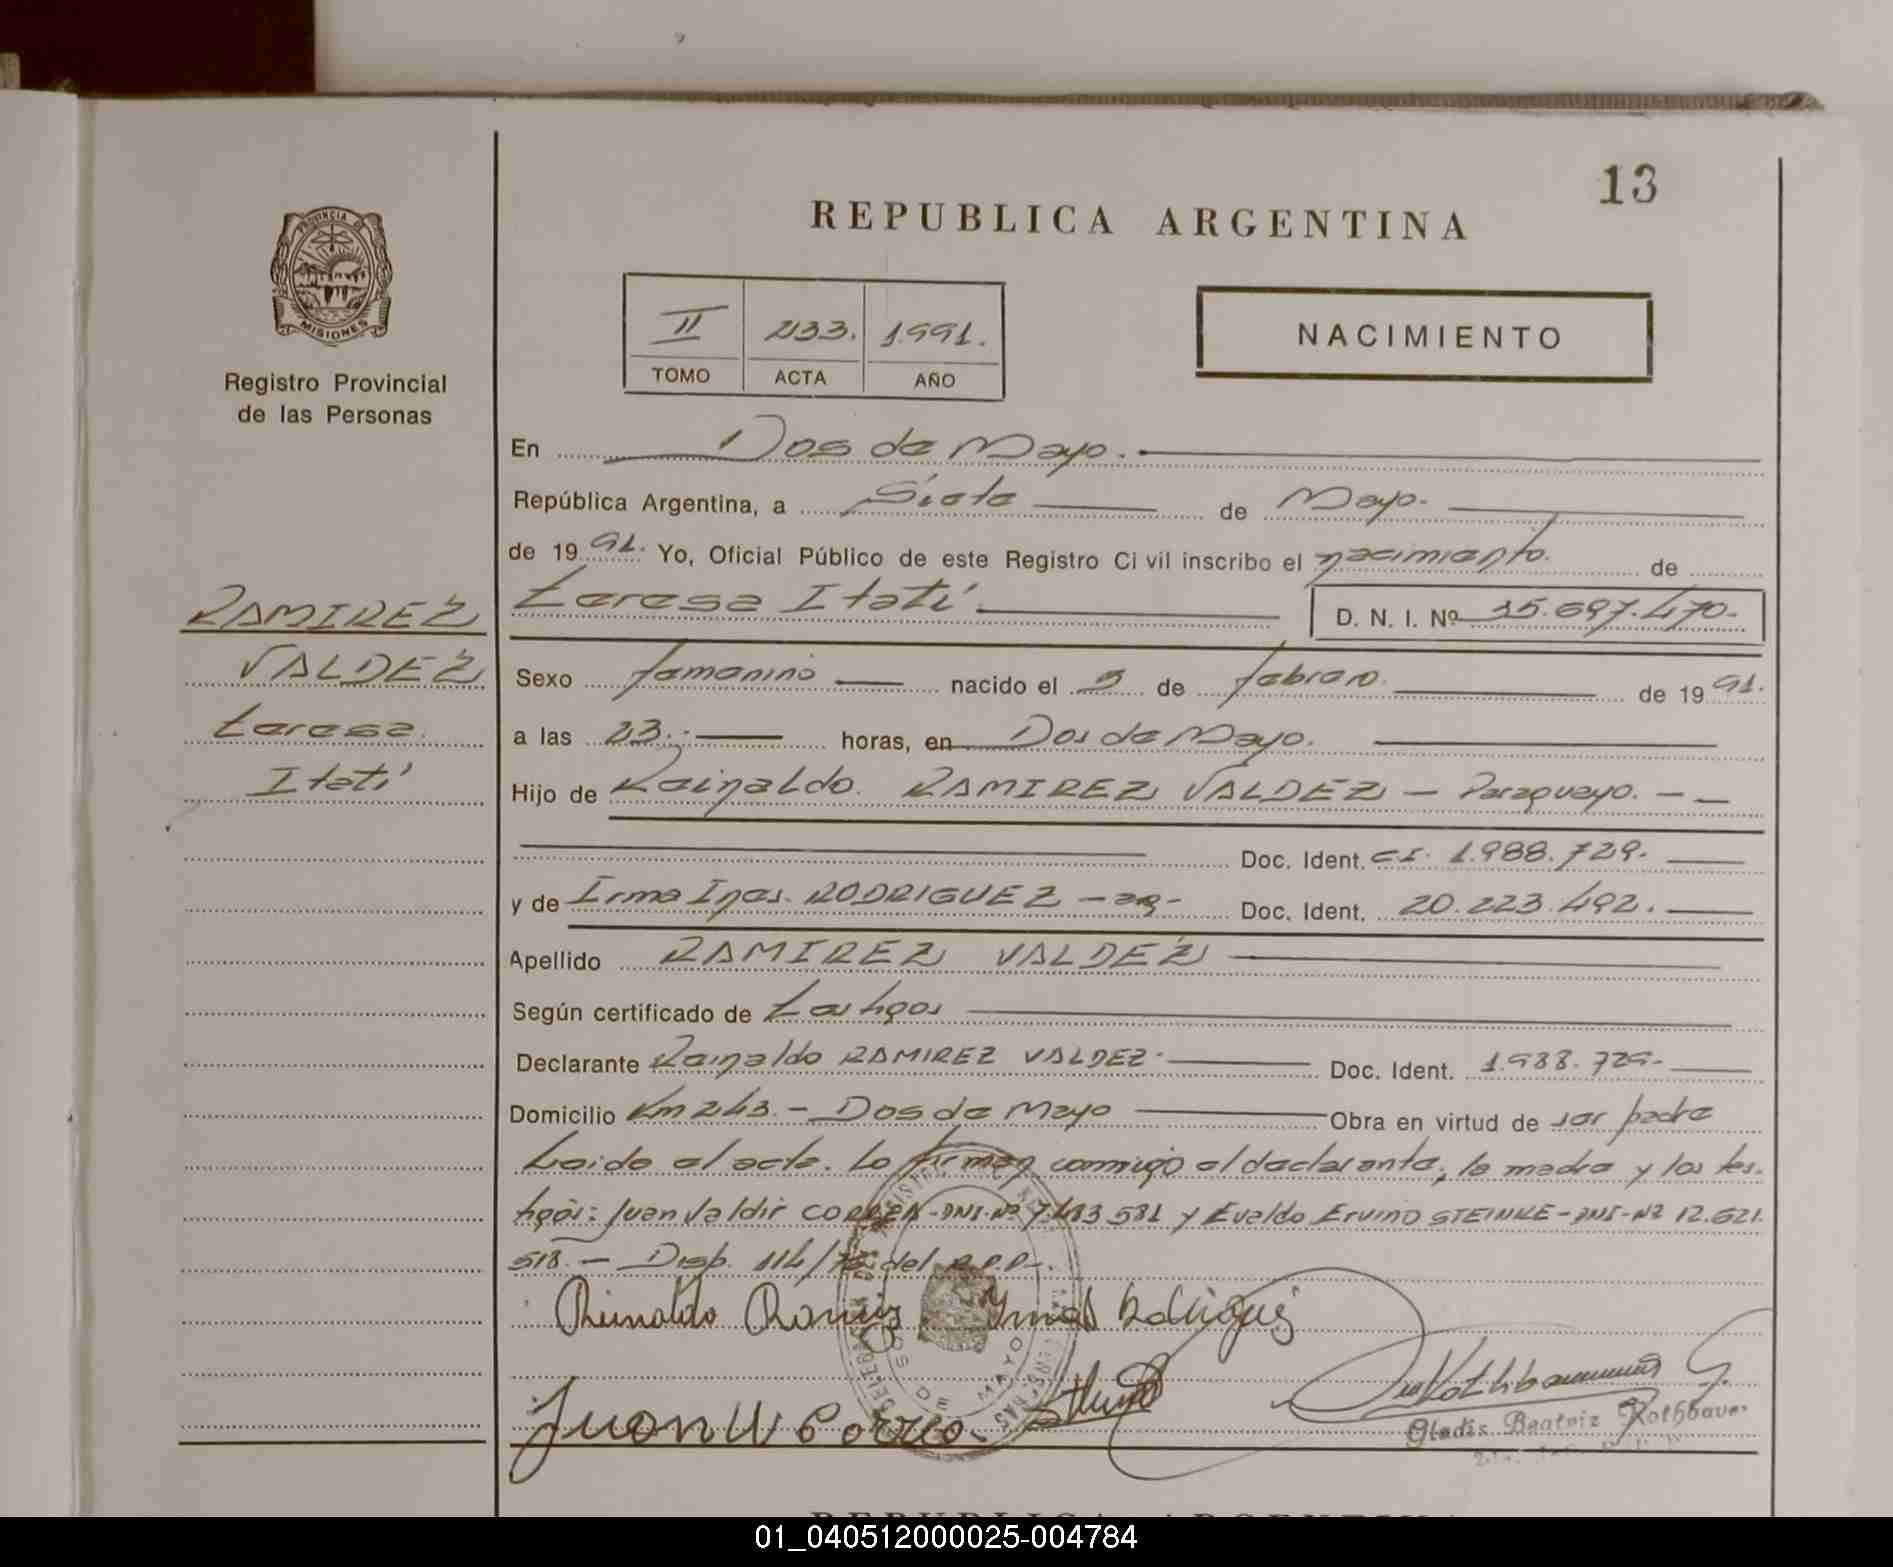 13
REPUBLICA ARGENTINA
PROVINCIA DE
MISIONES
Registro Provincial
de las Personas
II 233. 1991.
TOMO ACTA AÑO
NACIMIENTO
En Dos de Mayo.
República Argentina, a Siete de Mayo.
de 1991. Yo, Oficial Público de este Registro Civil inscribo el nacimiento. de
RAMIREZ
VALDEZ
Teresa
Itatí
Teresa Itatí D. N. I. Nº 35.697.470.
Sexo femenino nacido el 5 de febrero. de 1991.
a las 23. horas, en Dos de Mayo.
Hijo de Reinaldo. RAMIREZ VALDEZ - Paraguayo. -
Doc. Ident. CI. 1.988.729.
y de Irma Ines. RODRIGUEZ - arg - Doc. Ident. 20.223.492.
Apellido RAMIREZ VALDEZ
Según certificado de Testigos
Declarante Reinaldo RAMIREZ VALDEZ. Doc. Ident. 1.988.729.
Domicilio Km 243. - Dos de Mayo Obra en virtud de ser padre
Leida el acta. La firman conmigo el declarante, la madre y los tes.
tigos: Juan Valdir CORREA - DNI-Nº 7.483 581 y Evaldo Ervino STEINKE - DNI-Nº 12.621.
518. - Disp. 114/ del
Reinaldo Ramirez Ines Rodrigues
DOS DE MAYO
Juan V Correa
Gladis Beatriz Rothbauer
REPUBLICA ARGENTINA
01_040512000025-004784